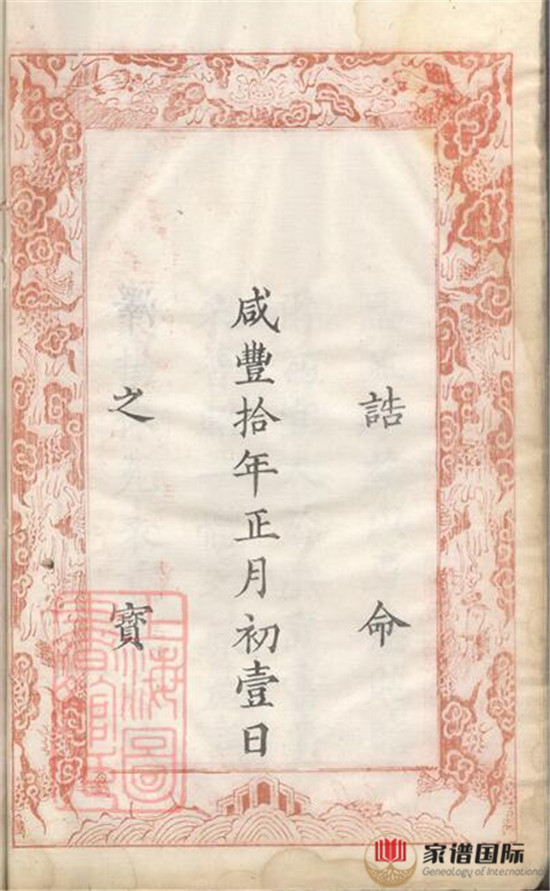 誥命
咸豐拾年正月初壹日
之寶
上海图书馆藏
家谱国际
Genealogy of Internationa